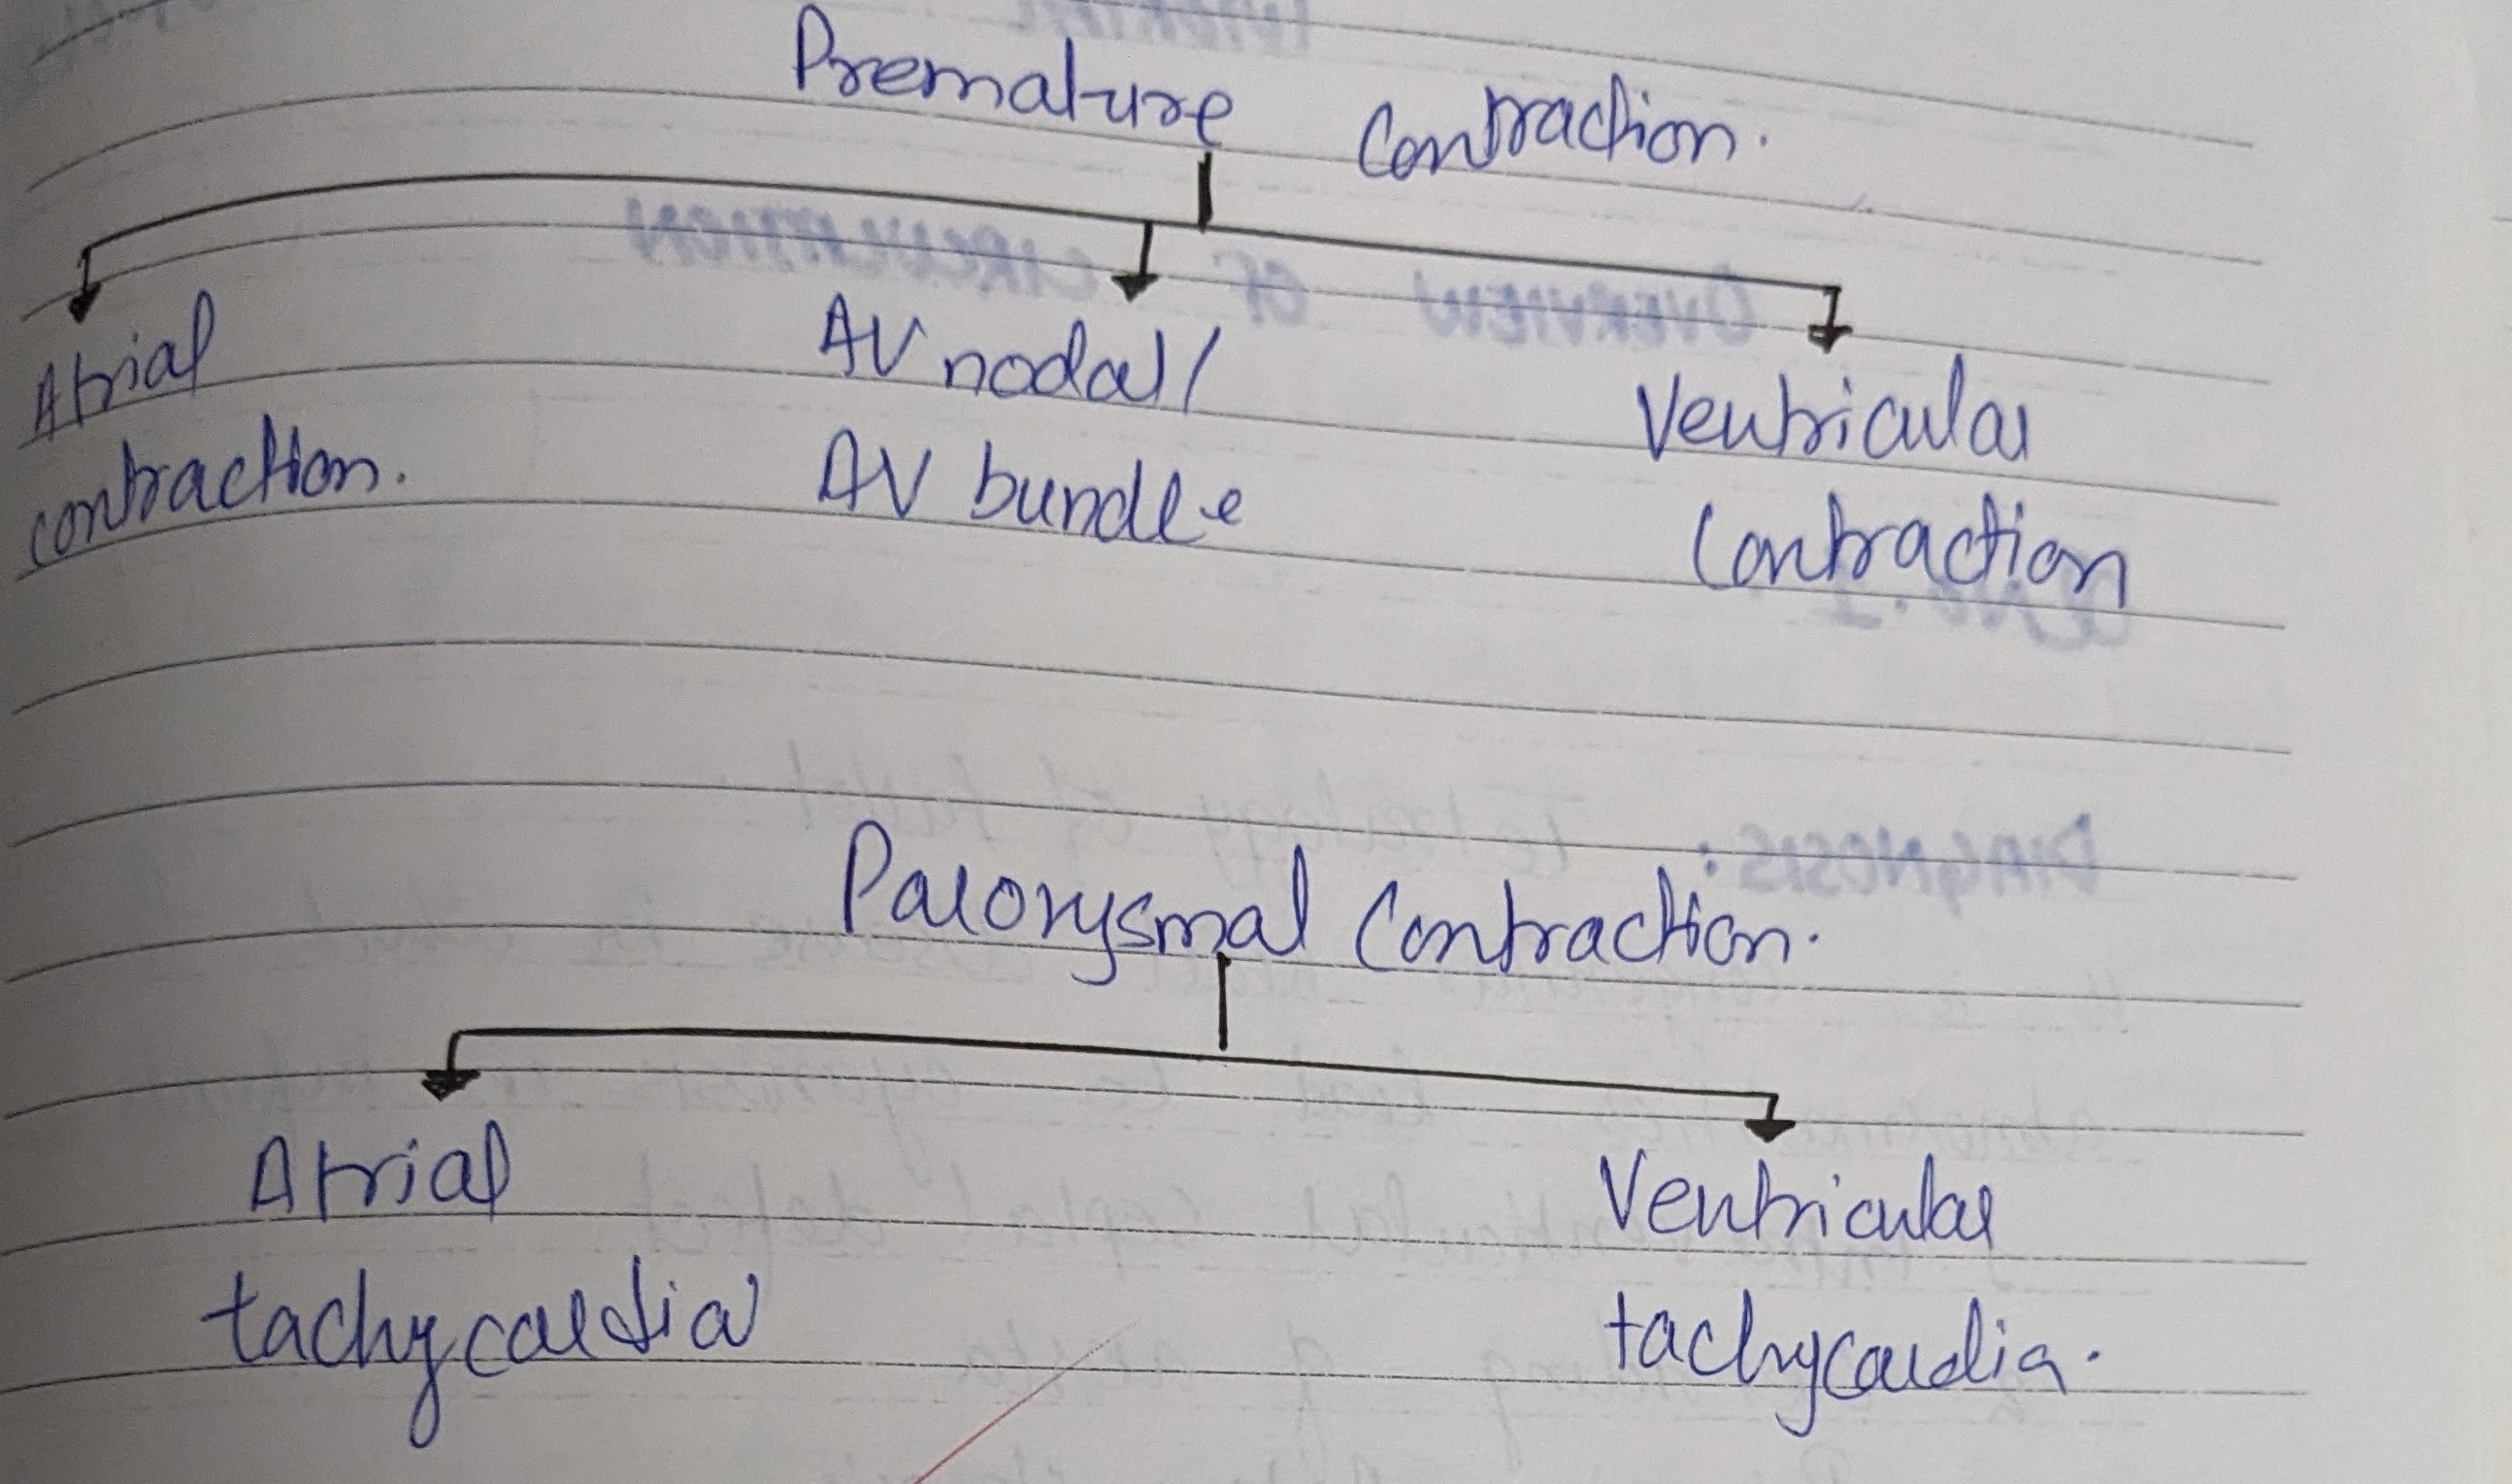 Premature Contraction.
Atrial
contraction.
AV nodal/
AV bundle
Ventricular
Contraction
Paroxysmal Contraction.
Atrial
tachycardia
Ventricular
tachycardia.